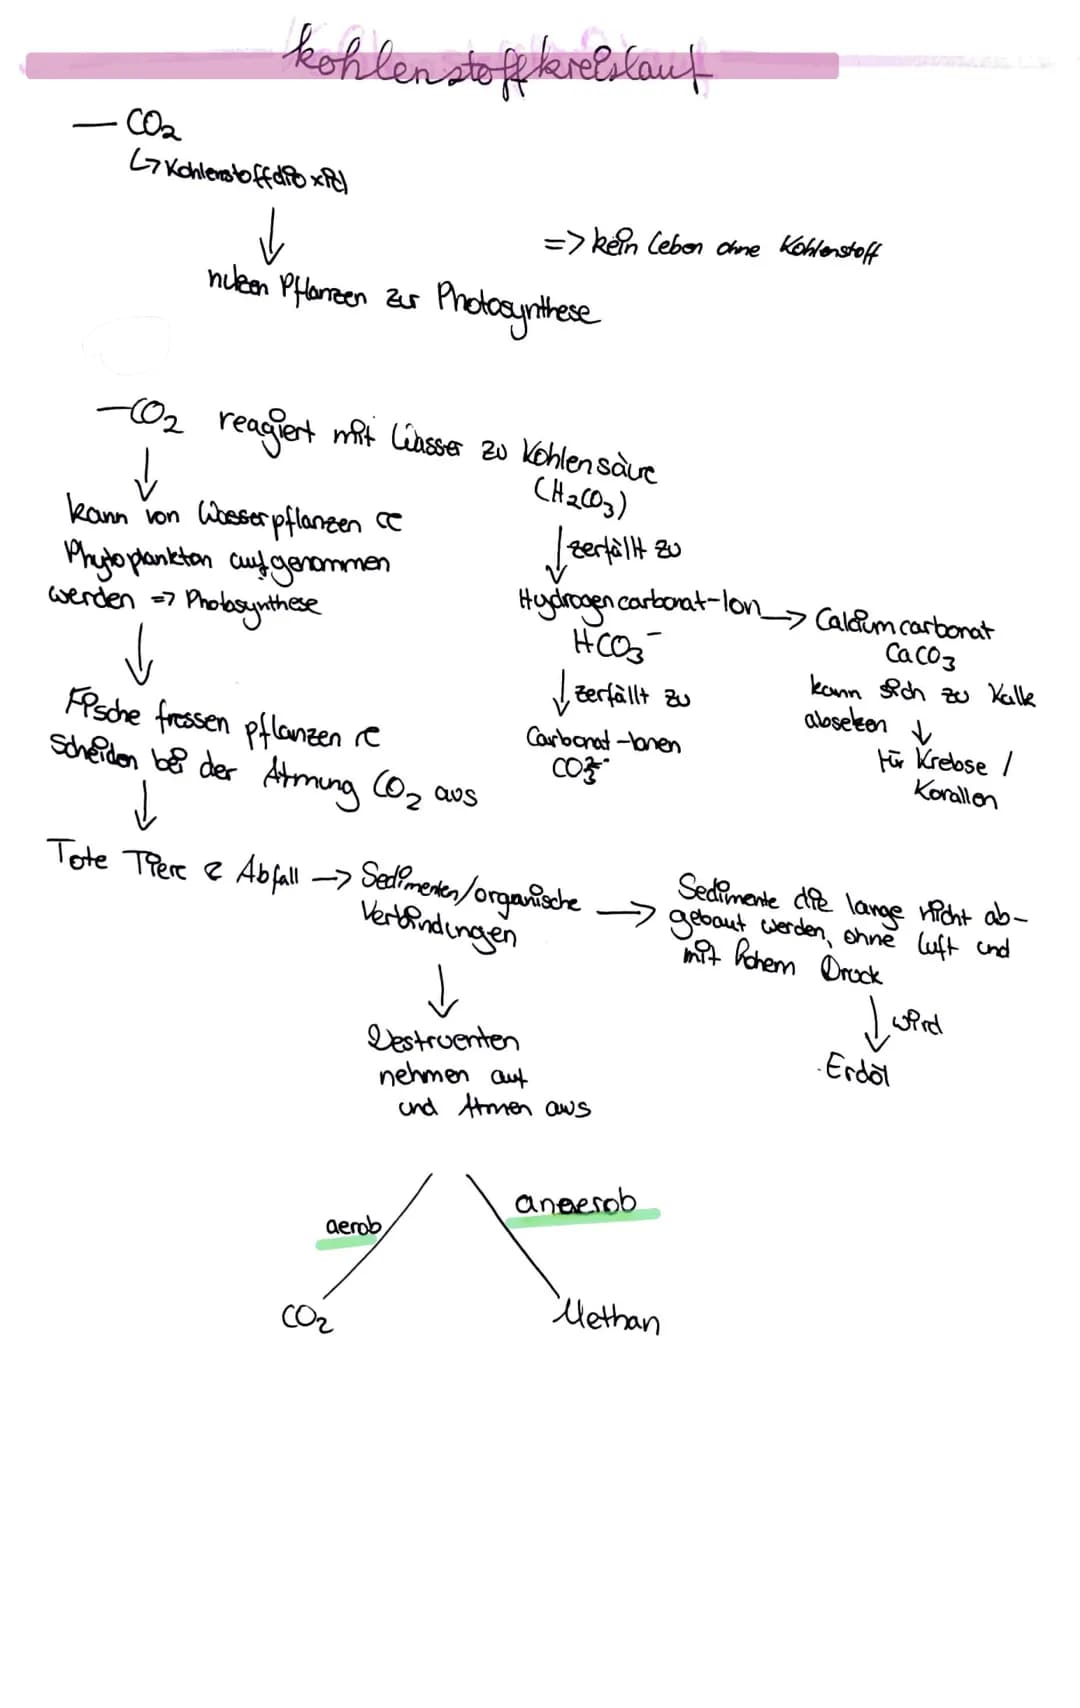 Kohlenstoffkreislauf
— CO₂
↳ Kohlenstoffdioxid
↓
=> kein Leben ohne Kohlenstoff
nutzen Pflanzen zur Photosynthese
— CO₂ reagiert mit Wasser zu Kohlensäure
(H₂CO₃)
↓
kann von Wasserpflanzen &
Phytoplankton aufgenommen
werden => Photosynthese
↓ zerfällt zu
Hydrogencarbonat-Ion → Calciumcarbonat
HCO₃⁻
CaCO₃
↓ zerfällt zu
Carbonat-Ionen
CO₃²⁻
kann sich zu Kalk
absetzen ↓
für Krebse /
Korallen
↓
Fische fressen pflanzen &
Scheiden bei der Atmung CO₂ aus
↓
Tote Tiere & Abfall → Sedimenten/organische →
Verbindungen
Sedimente die lange nicht ab-
gebaut werden, ohne Luft und
mit hohem Druck
↓ wird
Erdöl
↓
Destruenten
nehmen auf
und Atmen aus
aerob
anaerob
CO₂
Methan